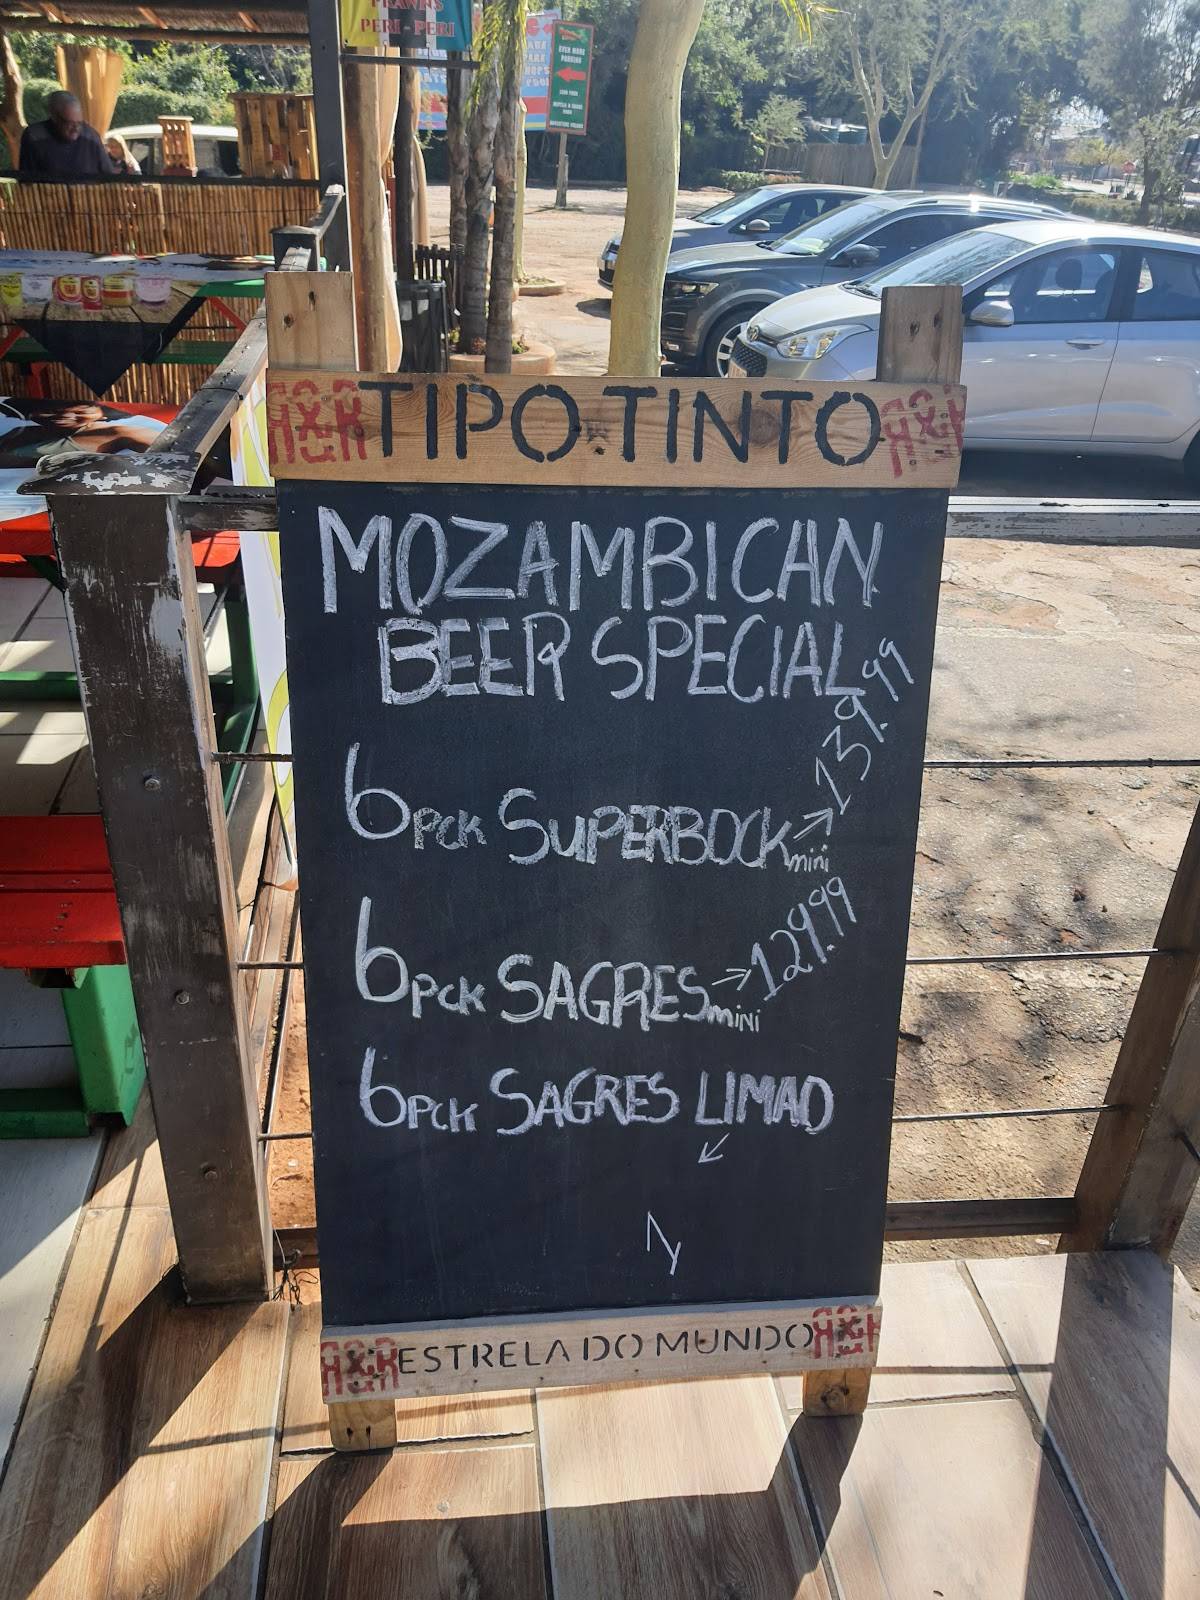 PRAWNS
PERI-PERI
EVEN MORE
PARKING
R&R TIPO TINTO R&R
MOZAMBICAN
BEER SPECIAL
6PCK SUPERBOCK mini → 139.99
6PCK SAGRES mini → 129.99
6PCK SAGRES LIMAO
R&R ESTRELA DO MUNDO R&R